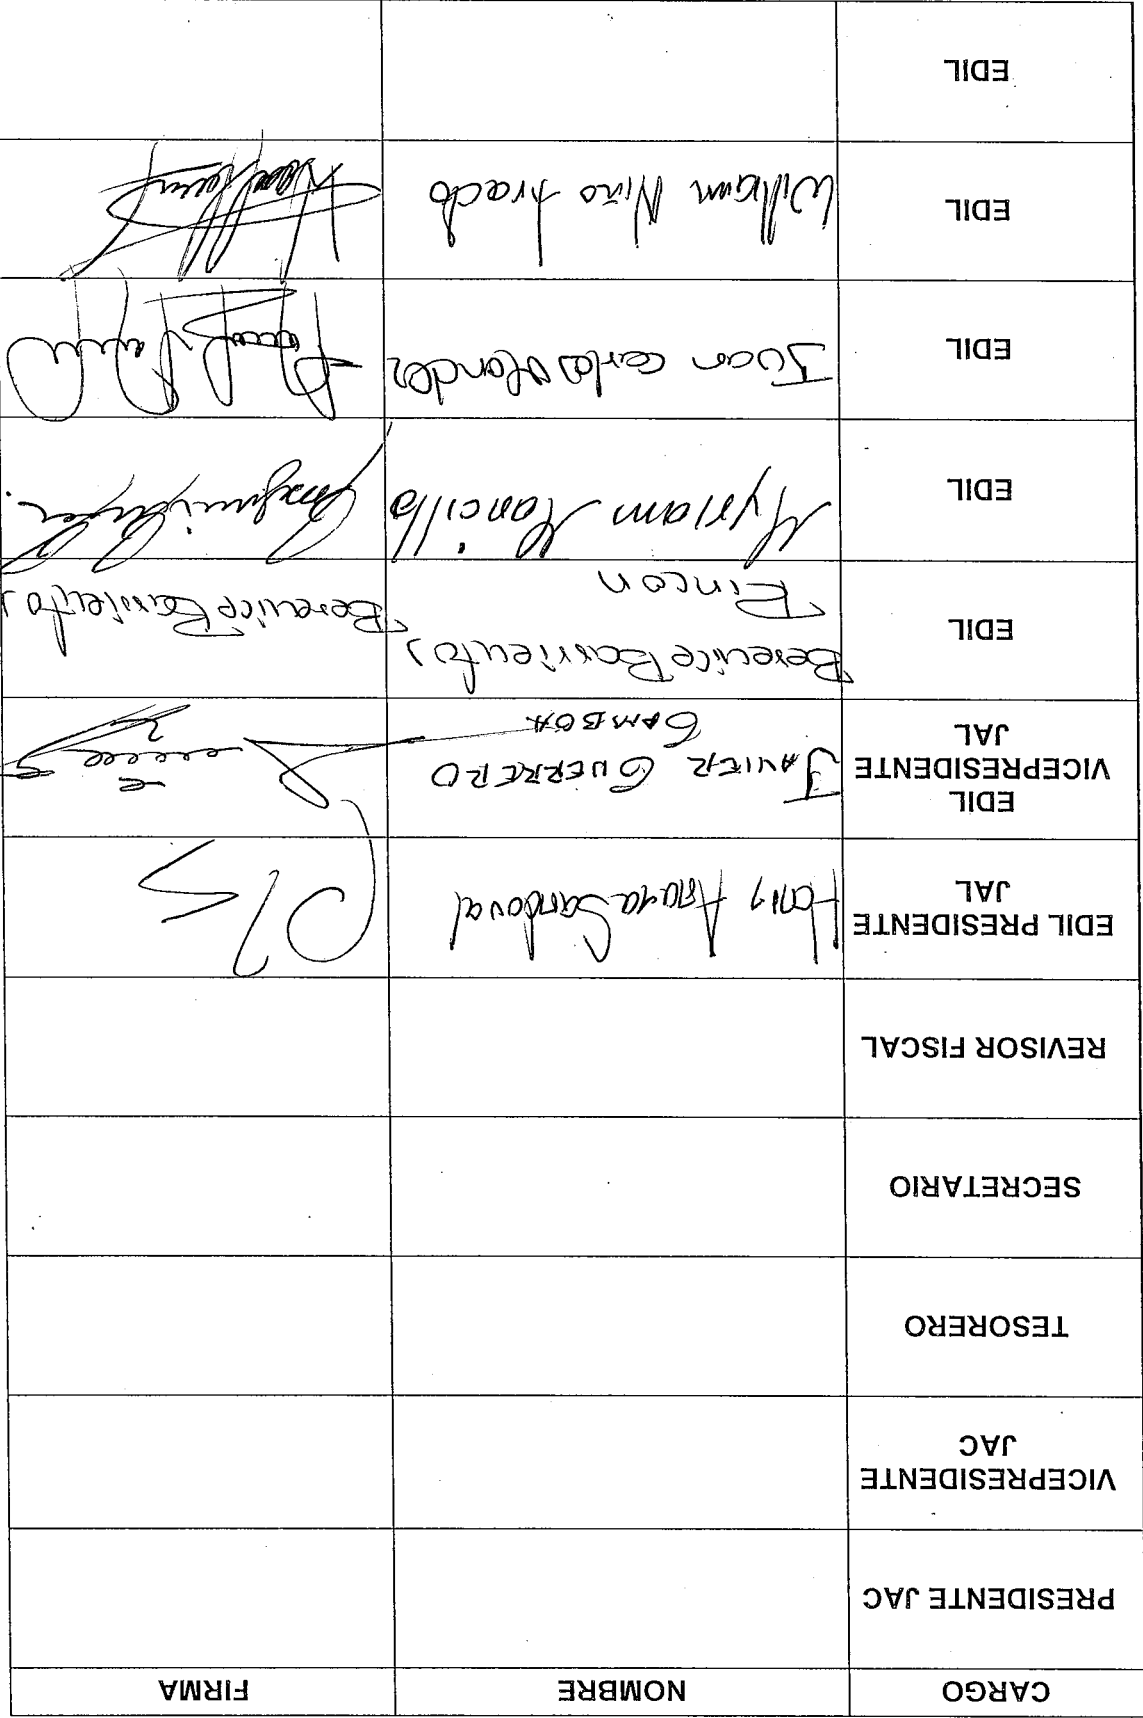 CARGO NOMBRE FIRMA
PRESIDENTE JAC
VICEPRESIDENTE
JAC
TESORERO
SECRETARIO
REVISOR FISCAL
EDIL PRESIDENTE
JAL
Anaya Sandoval
EDIL
VICEPRESIDENTE
JAL
JAVIER GUERRERO
GAMBOA
EDIL
Berenice Barrientos
Rincon
Berenice Barrientos
EDIL
Myriam Mancilla
EDIL
Juan Carlos
EDIL
William Niño
EDIL